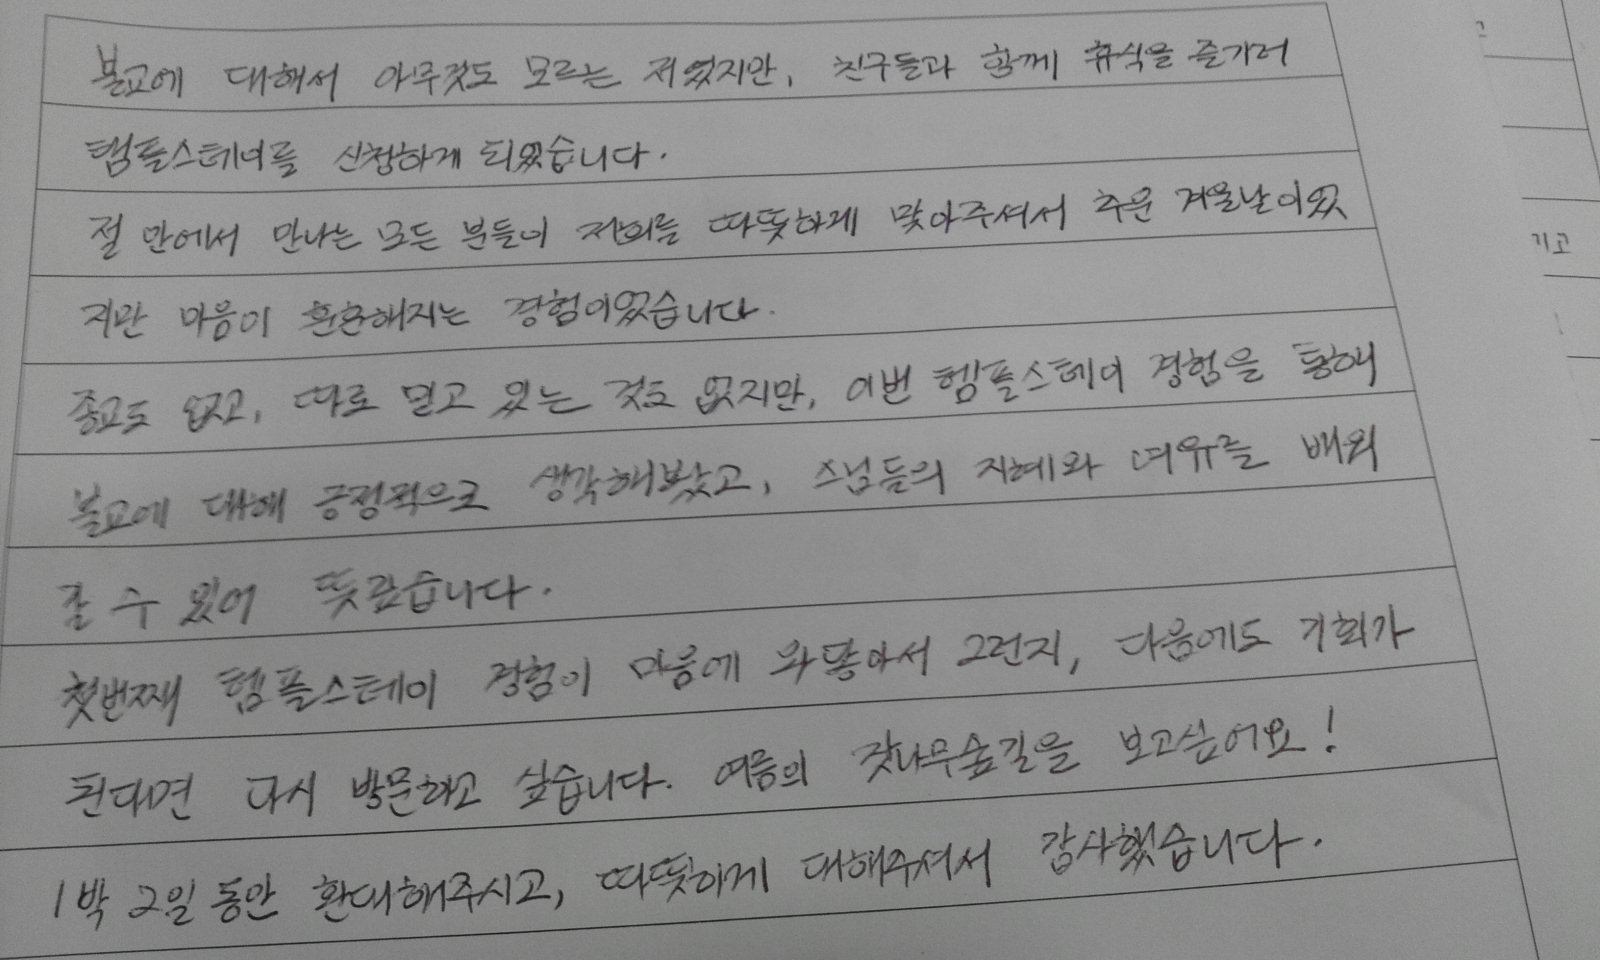 불교에 대해서 아무것도 모르는 저였지만, 친구들과 함께 휴식을 즐기러
템플스테이를 신청하게 되었습니다.
절 안에서 만나는 모든 분들이 저희를 따뜻하게 맞아주셔서 추운 겨울날이었
지만 마음이 훈훈해지는 경험이었습니다.
종교도 없고, 따로 믿고 있는 것도 없지만, 이번 템플스테이 경험을 통해
불교에 대해 긍정적으로 생각해봤고, 스님들의 지혜와 여유를 배워
갈 수 있어 뜻깊습니다.
첫번째 템플스테이 경험이 마음에 와닿아서 그런지, 다음에도 기회가
된다면 다시 방문하고 싶습니다. 여름의 잣나무숲길을 보고싶어요!
1박 2일 동안 환대해주시고, 따뜻하게 대해주셔서 감사했습니다.
기고